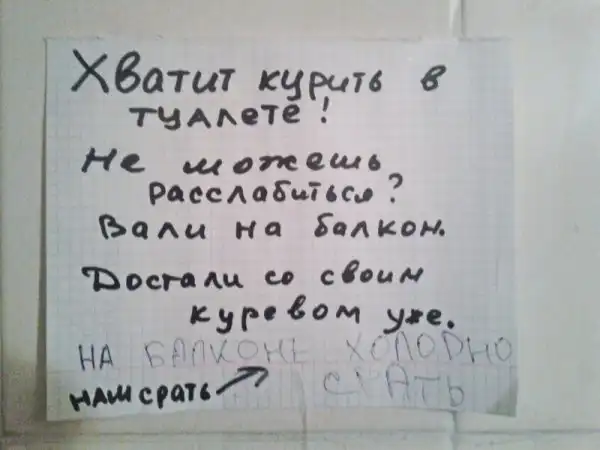 Хватит курить в
туалете!
Не можешь
расслабиться?
Вали на балкон.
Достали со своим
куревом уже.
НА БАЛКОНЕ ХОЛОДНО
СРАТЬ
НАМ СРАТЬ